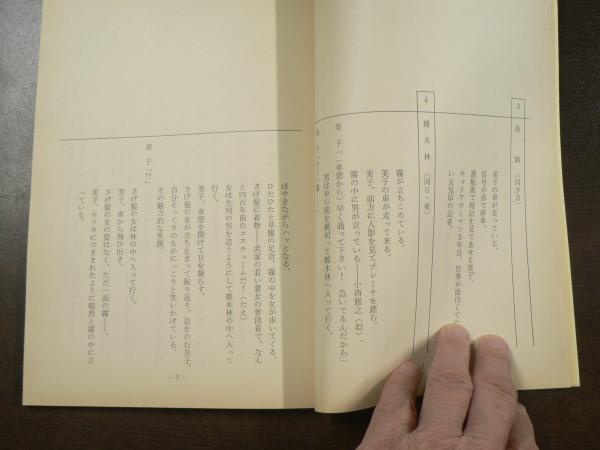 3 街路(同夕方)
美子の車が走っている。
信号が赤で停車。
運転席で時計を見てあせる美子。
キャリアウーマン3年目、仕事が面白くて
い元気印の記者。
4 雑木林(同日・夜)
霧が立ちこめている。
美子の車が走って来る。
美子、前方に人影を見てブレーキを踏む。
霧の中に男が立っている――小西雅之(42)。
美子「(車窓から)早く通って下さい! 急いでるんだから」
男は車の前を横切って雑木林へ入って行く。
美子「
ぼやきながらハッとなる。
ひたひたと草履の足音、霧の中を女が歩いてくる。
さげ髪に着物――武家の若い妻女の普段着で、なん
と四百年前のコスチュームだ!(たえ)
女は先刻の男を追うようにして雑木林の中へ入って
行く。
美子、車窓を開けて目を凝らす。
さげ髪の女が立ち止まって振り返り、息をのむ美子。
自分そっくりの女がにっこりと笑いかけている。
その魅力的な笑顔。
美子「!?」
さげ髪の女は林の中へ入って行く。
美子、車から飛び出す。
さげ髪の女の姿はなく、ただ一面の霧――。
美子、キツネにつままれたように呆然と霧の中に立
っている。
―3―